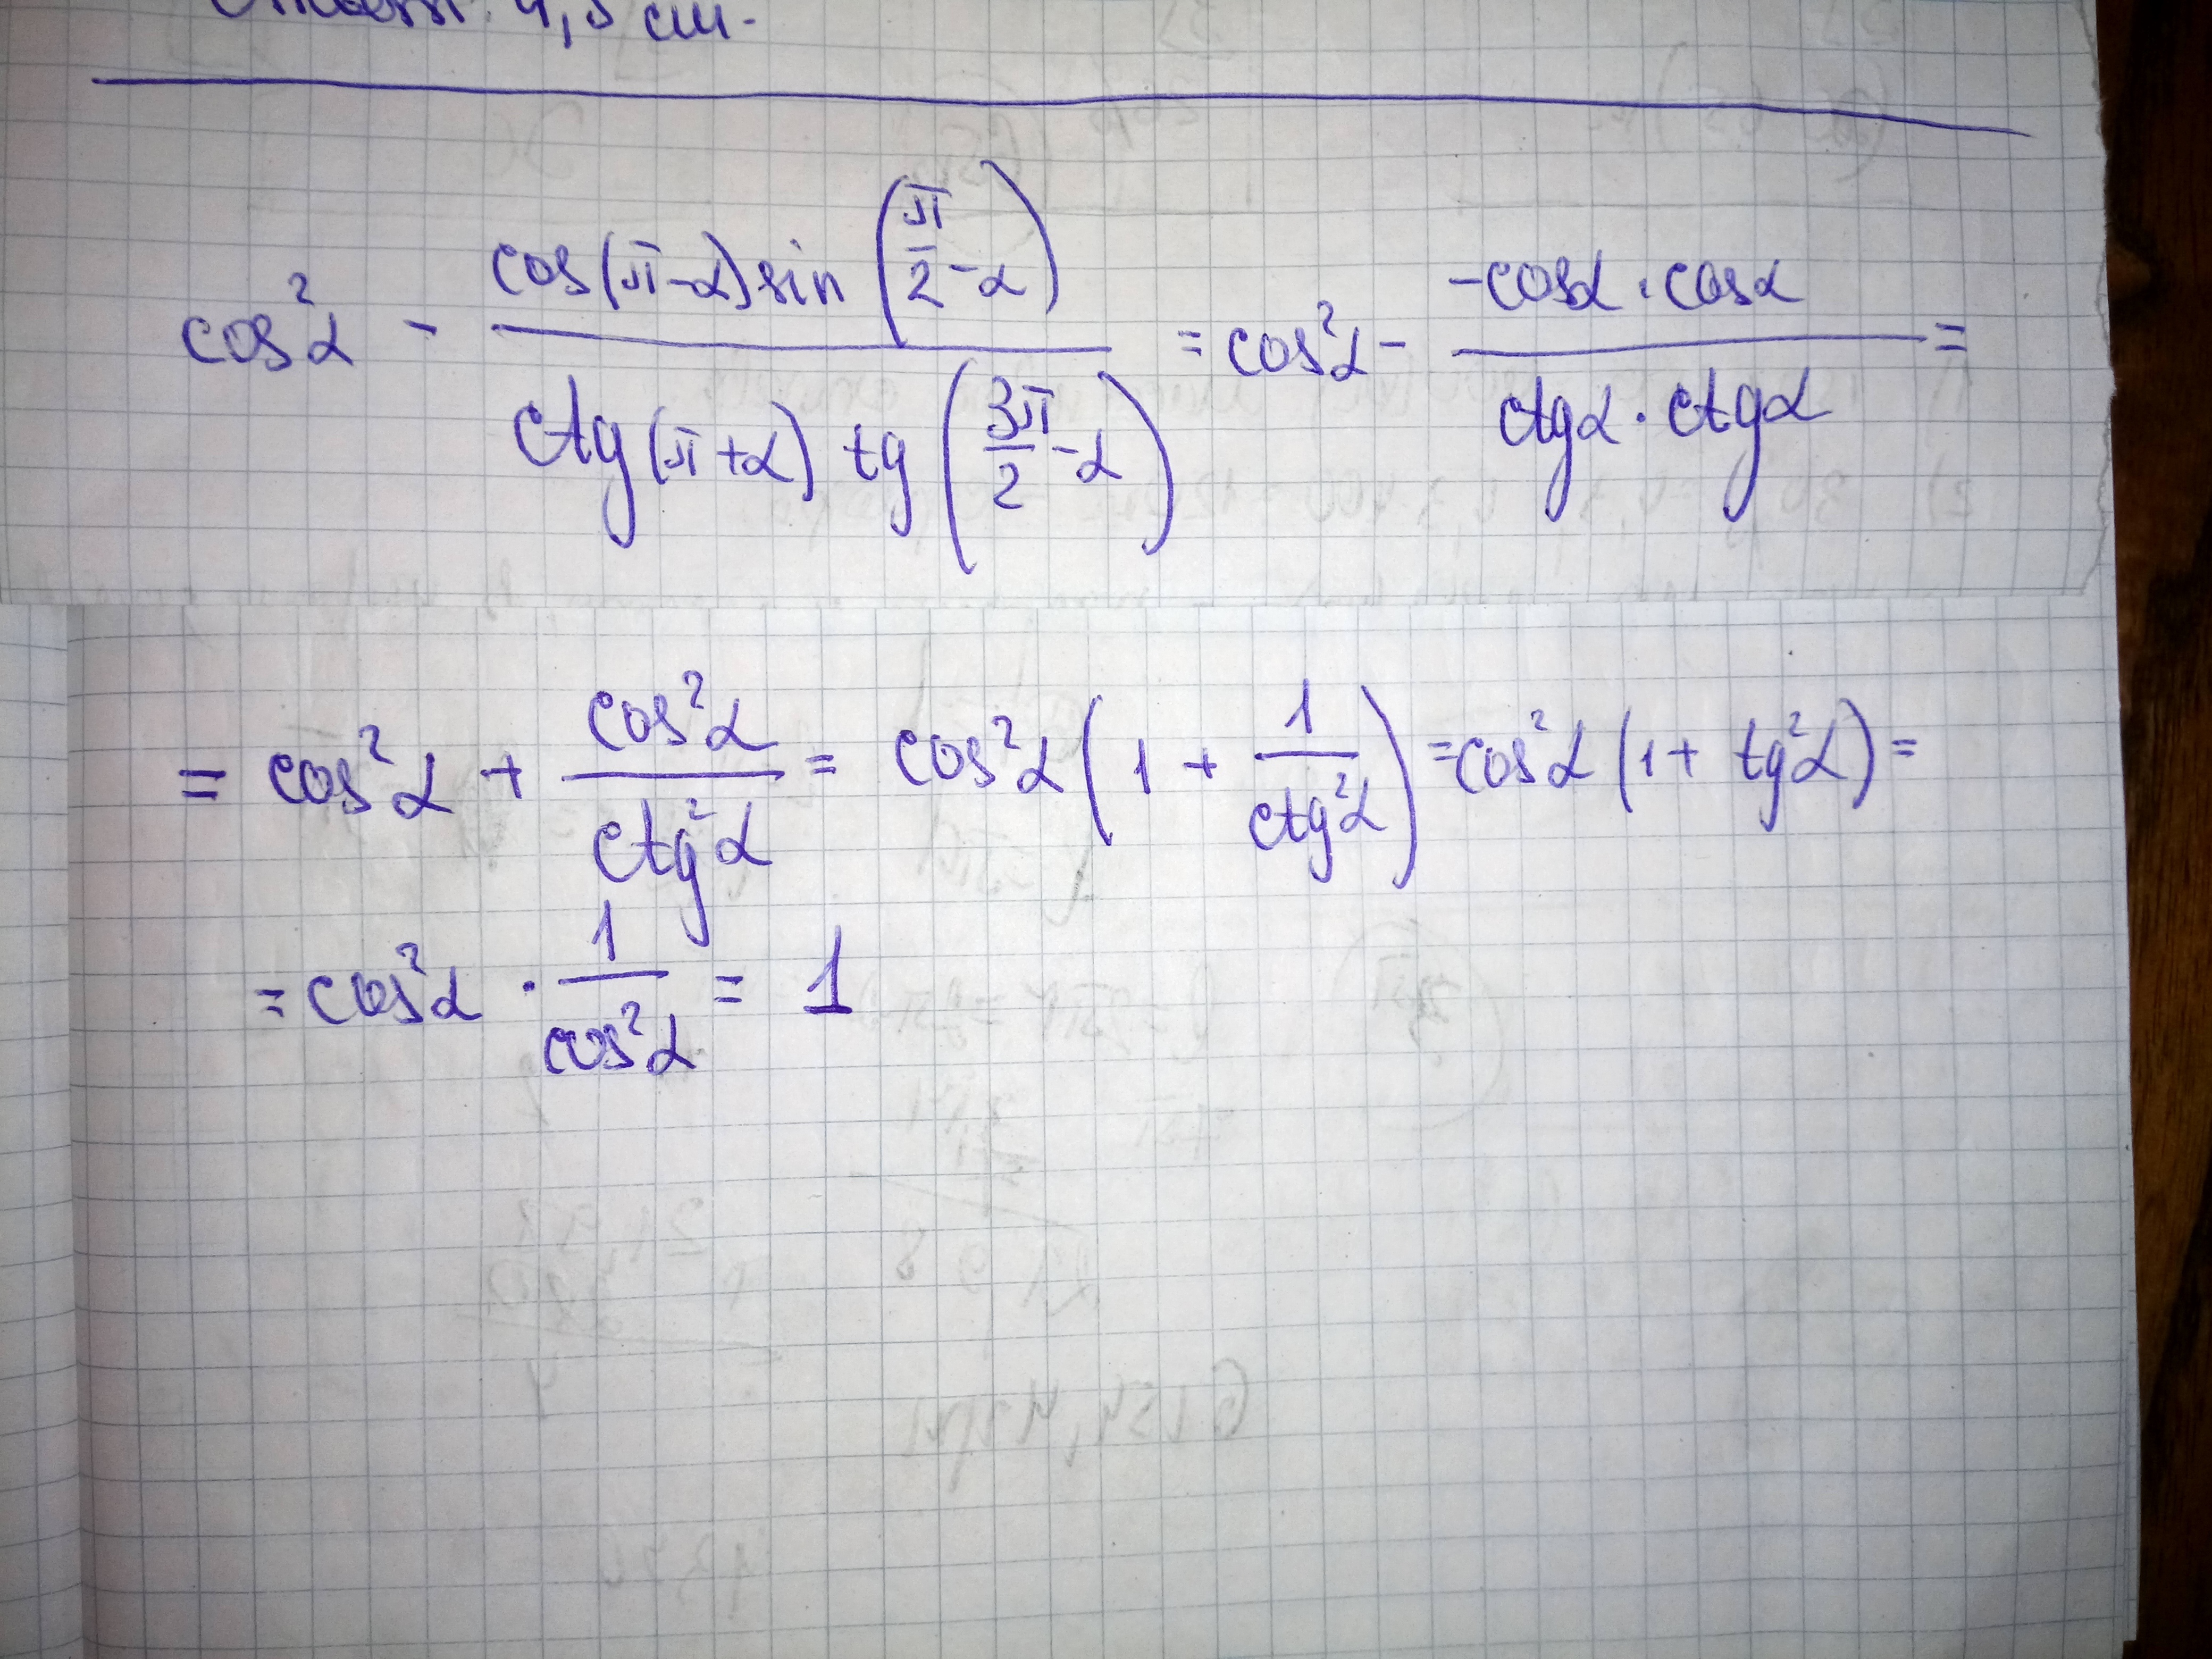 4,5 см.
cos²α - cos(π-α)sin(π/2-α) / ctg(π+α) tg(3π/2-α) = cos²α - -cosα·cosα / ctgα·ctgα =
= cos²α + cos²α / ctg²α = cos²α (1 + 1/ctg²α) = cos²α (1 + tg²α) =
= cos²α · 1/cos²α = 1